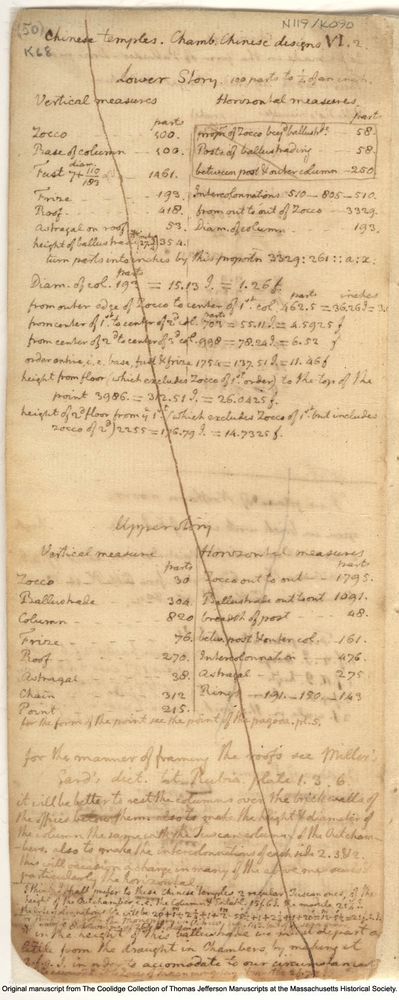 (50)
N119/K090
K68
Chinese temples. Chamb. Chinese designs VI. 2
Lower Story. 100 parts to
Vertical measures Horizontal measures
parts part
Zocco 100. of Zocco beyd ballustrs 58.
Base of column 100. Posts of ballustrading 58.
diam.
Fust 7+110/183 1461. between post & outer column 250.
Frize 193. Intercolonnations 510 - 805 - 510.
Roof 418. from out to out of Zocco 3329.
Astragal on roof 53. Diam. of column 193.
height of ballustrade 354.
turn parts into inches by this proportn 3329:261::a:x.
parts
Diam. of col. 193 = 15.13 I. = 1.26 f.
parts inches
from outer edge of Zocco to center of 1st col. 462.5 = 36.26 I =
from center of 1st to center of 2d col. 703 = 55.11 I = 4.5925 f
from center of 2d to center of 3d col. 998 = 78.24 I = 6.52 f
order entire, i.e. base, fust & frize 1754 = 137.51 I = 11.46 f
height from floor (which excludes Zocco of 1st order) to the top of the
point 3986. = 312.51 I. = 26.0425 f.
height of 2d floor from ye 1st (which excludes Zocco of 1st but includes
zocco of 2d) 2255 = 176.79 I. = 14.7325 f.
Upper story
Vertical measure Horizontal measures
parts parts
Zocco 30 Zocco out to out 1795.
Ballustrade 304 Ballustrade out to out 1691.
Column 820 breadth of post 48.
Frize 76. betw. post & outer col. 161.
Roof 270. Intercolonnation 476.
Astragal 38. Astragal 275
Chain 312 Rings 191. - 150 - 143
Point 215.
for the form of the point see the point of the pagoda. pl. 5.
for the manner of framing the roofs see Miller's
Gard's dict. tit. Rubia. plate 1. 3. 6.
it will be better to rest the columns over the brick walls of
the offices below them. also to make the height & diameter of
the column the same with the Tuscan column of the Outcham-
-bers. also to make the intercolonations of each side 2. 3. & 2.
this will occasion a change in many of the above measures
particularly the horizontal.
I think I shall prefer to these Chinese temples 2 regular Tuscan ones, of the
height of the Outchamber
in the height of this ballustrade we must depart a
little from the draught in Chambers, by making it
in order to accomodate to our circumstances
Original manuscript from The Coolidge Collection of Thomas Jefferson Manuscripts at the Massachusetts Historical Society.